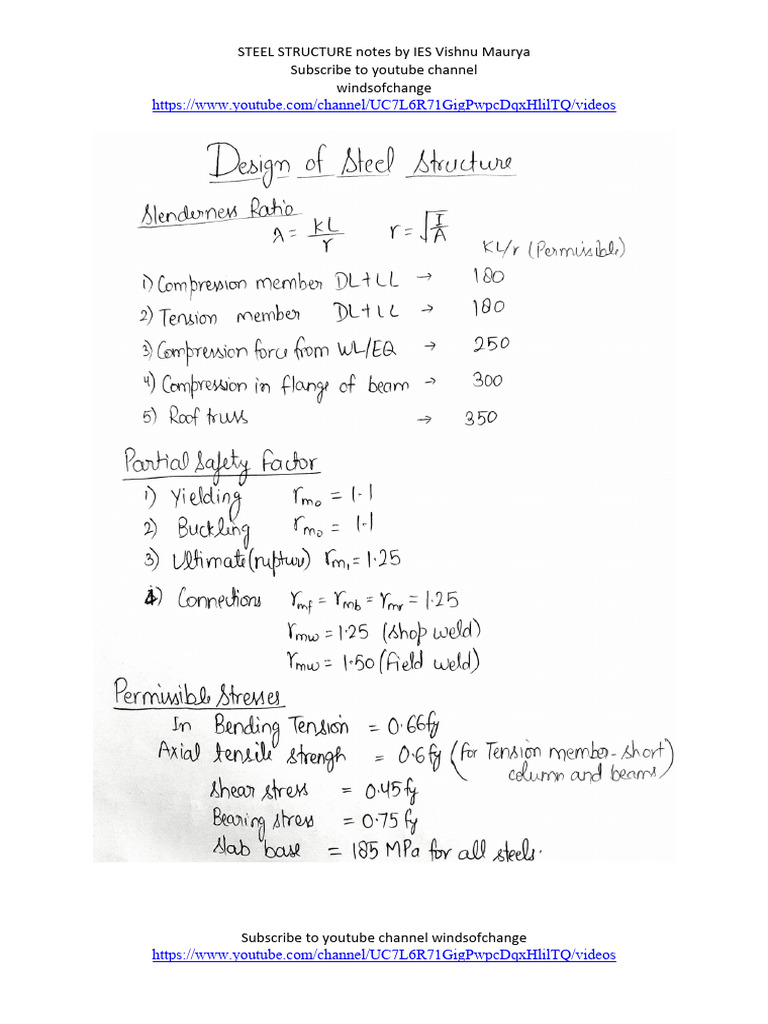 STEEL STRUCTURE notes by IES Vishnu Maurya
Subscribe to youtube channel
windsofchange
https://www.youtube.com/channel/UC7L6R71GigPwpcDqxHlilTQ/videos
Design of Steel Structure
Slenderness Ratio
λ = KL/r r = √I/A
KL/r (Permissible)
1) Compression member DL+LL → 180
2) Tension member DL+LL → 180
3) Compression force from WL/EQ → 250
4) Compression in flange of beam → 300
5) Roof truss → 350
Partial Safety Factor
1) Yielding rmo = 1.1
2) Buckling rmo = 1.1
3) Ultimate (rupture) rm1 = 1.25
4) Connections rmf = rmb = rmr = 1.25
rmw = 1.25 (shop weld)
rmw = 1.50 (Field weld)
Permissible Stresses
In Bending Tension = 0.66fy
Axial tensile strengh = 0.6fy (for Tension member-short column and beams)
Shear stress = 0.45fy
Bearing stress = 0.75fy
Slab base = 185 MPa for all steels.
Subscribe to youtube channel windsofchange
https://www.youtube.com/channel/UC7L6R71GigPwpcDqxHlilTQ/videos